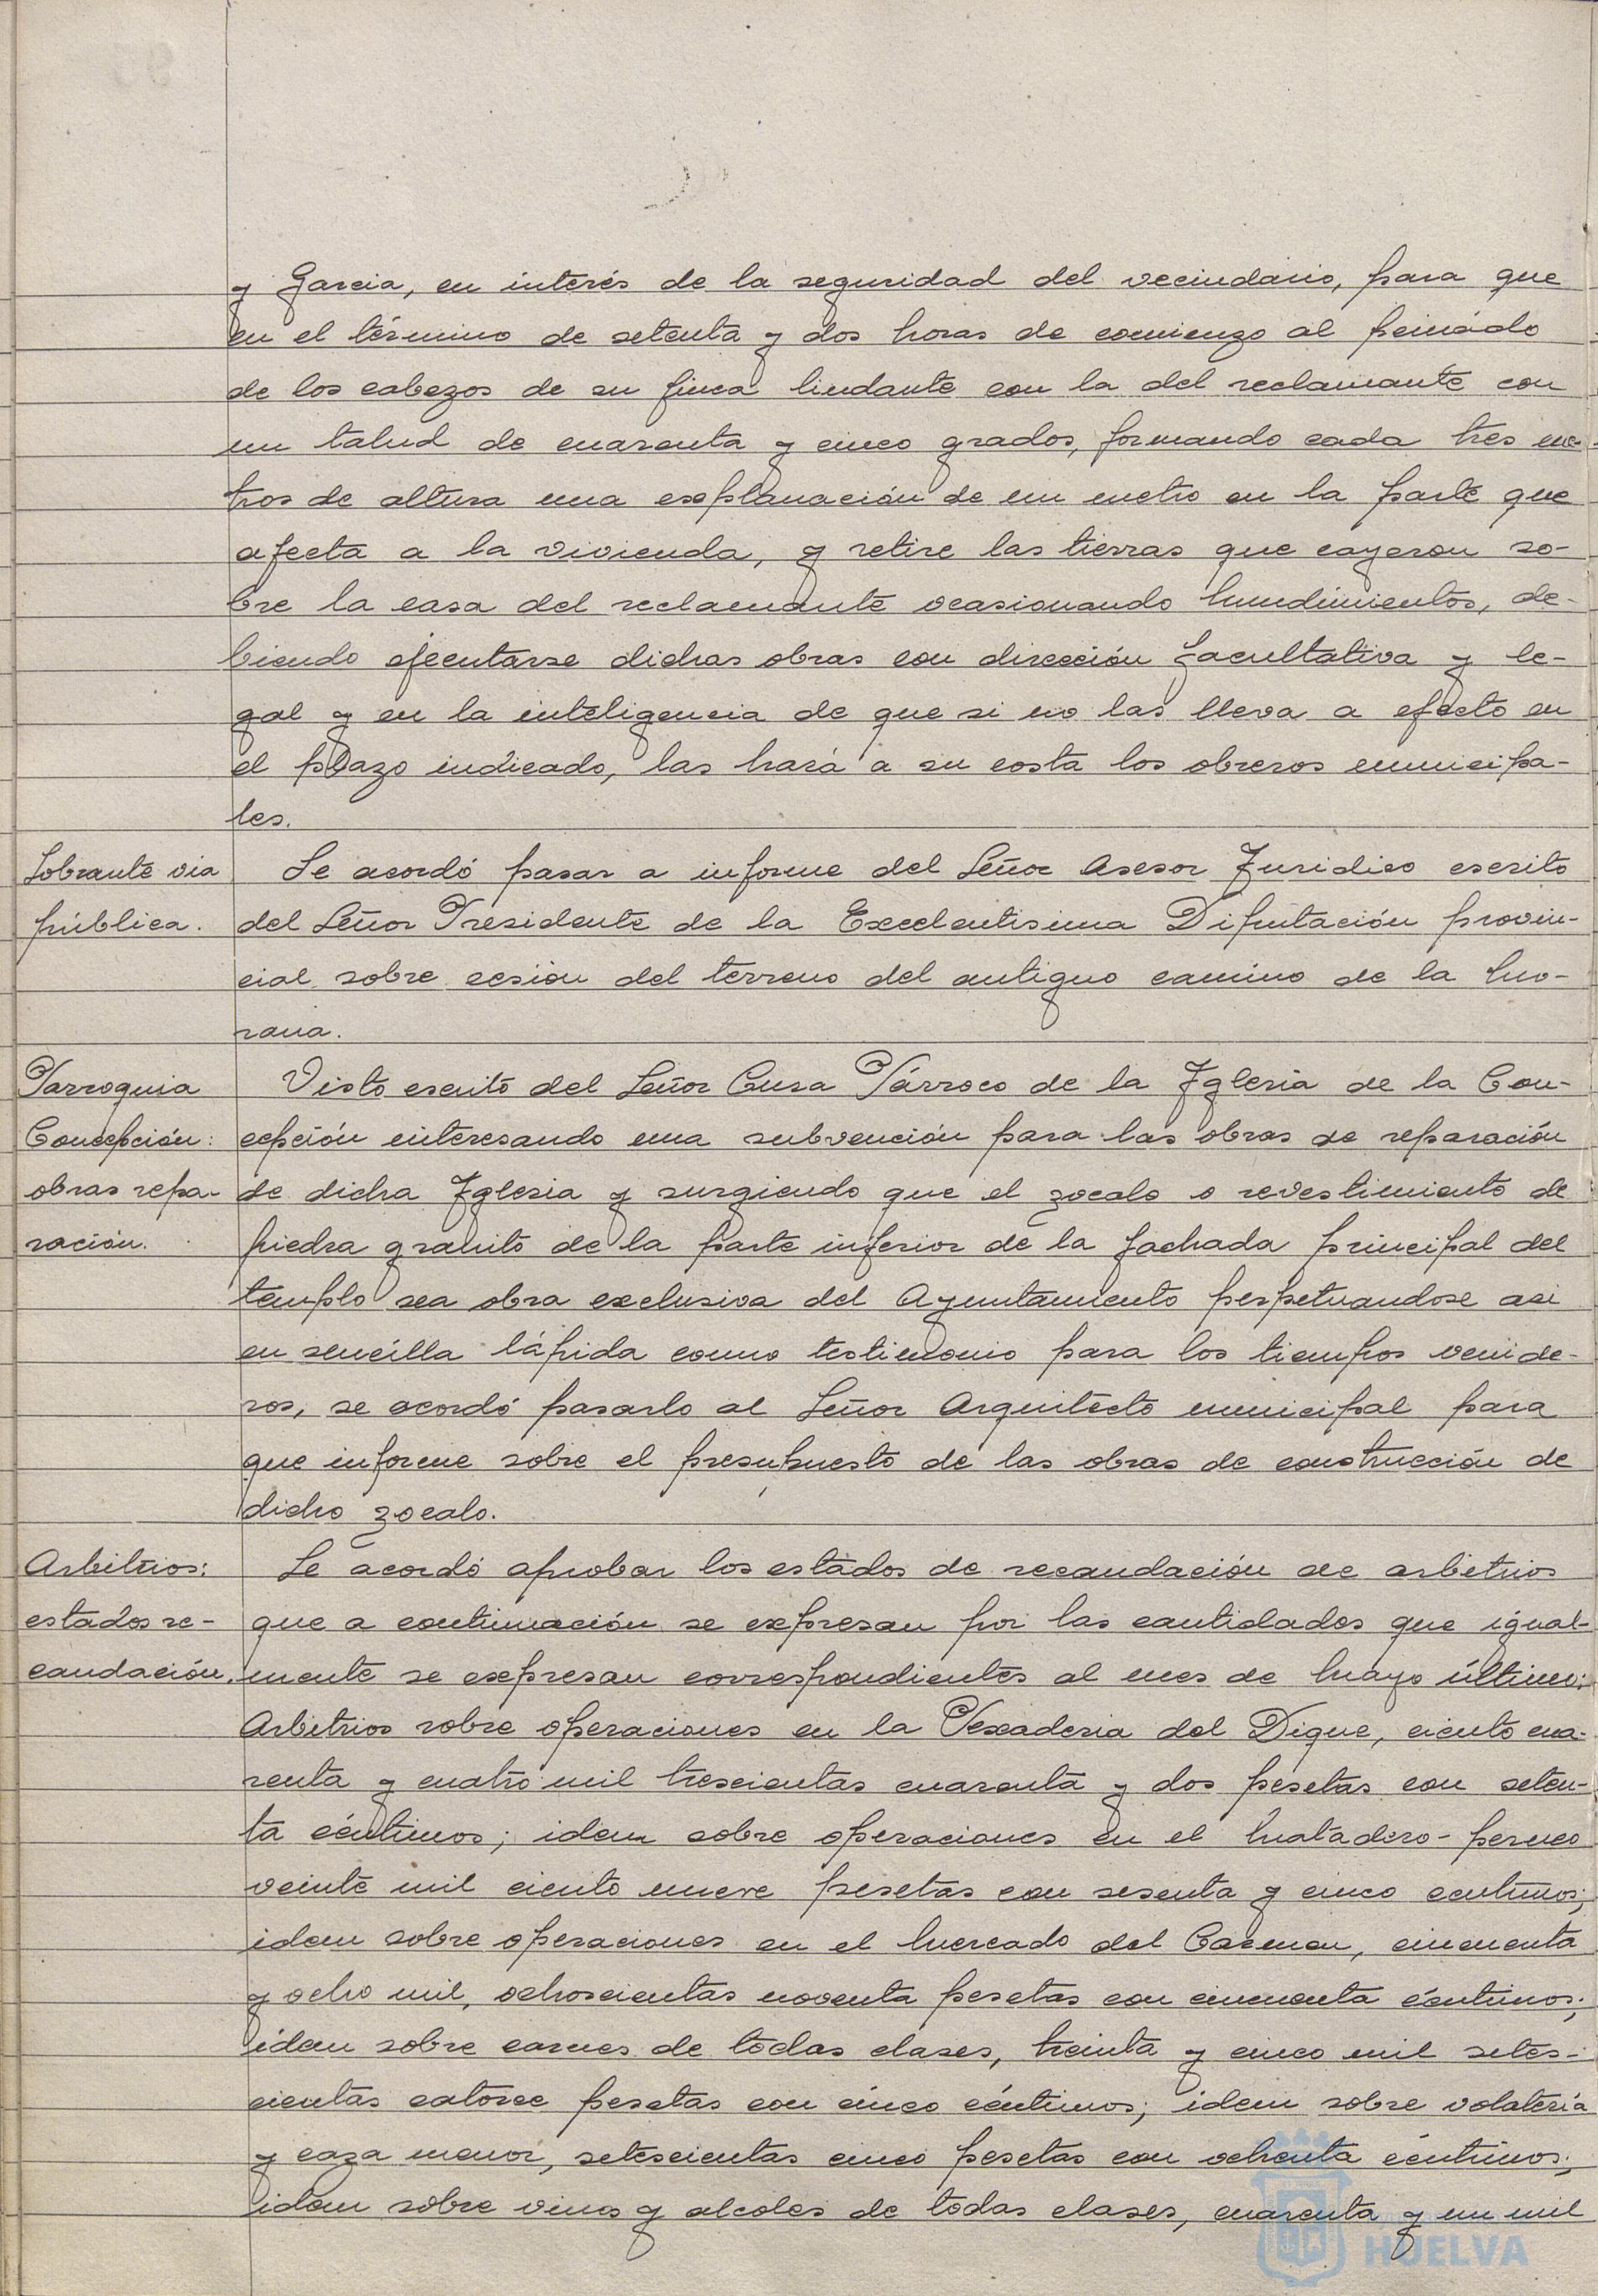 y Garcia, en interés de la seguridad del vecindario, para que
en el término de setenta y dos horas de comienzo al peinado
de los cabezos de su finca lindante con la del reclamante con
un talud de cuarenta y cinco grados, formando cada tres me-
tros de altura una explanación de un metro en la parte que
afecta a la vivienda, y retire las tierras que cayeron so-
bre la casa del reclamante ocasionando hundimientos, de-
biendo ejecutarse dichas obras con dirección facultativa y le-
gal y en la inteligencia de que si no las lleva a efecto en
el plazo indicado, las hará a su costa los obreros municipa-
les.
Sobrante via
pública.
Se acordó pasar a informe del Señor Asesor Juridico escrito
del Señor Presidente de la Excelentisima Diputación provin-
cial sobre cesión del terreno del antiguo camino de la Mo-
rana.
Parroquia
Concepción:
obras repa-
ración.
Visto escrito del Señor Cura Párroco de la Iglesia de la Con-
cepción interesando una subvención para las obras de reparación
de dicha Iglesia y surgiendo que el zocalo o revestimiento de
piedra granito de la parte inferior de la fachada principal del
templo sea obra exclusiva del Ayuntamiento perpetuandose asi
en sencilla lápida como testimonio para los tiempos venide-
ros, se acordó pasarlo al Señor Arquitecto municipal para
que informe sobre el presupuesto de las obras de construcción de
dicho zocalo.
Arbitrios:
estados re-
caudación.
Se acordó aprobar los estados de recaudación de arbitrios
que a continuación se expresan por las cantidades que igual-
mente se expresan correspondientes al mes de Mayo último:
Arbitrios sobre operaciones en la Pescaderia del Dique, ciento cua-
renta y cuatro mil trescientas cuarenta y dos pesetas con seten-
ta céntimos; idem sobre operaciones en el Matadero-perneo
veinte mil ciento nueve pesetas con sesenta y cinco centimos;
idem sobre operaciones en el Mercado del Carmen, cincuenta
y ocho mil, ochoscientas noventa pesetas con cincuenta céntimos;
idem sobre carnes de todas clases, treinta y cinco mil setes-
cientas catorce pesetas con cinco céntimos; idem sobre volatería
y caza menor, setescientas cinco pesetas con ochenta céntimos;
idem sobre vinos y alcoles de todas clases, cuarenta y un mil
HUELVA